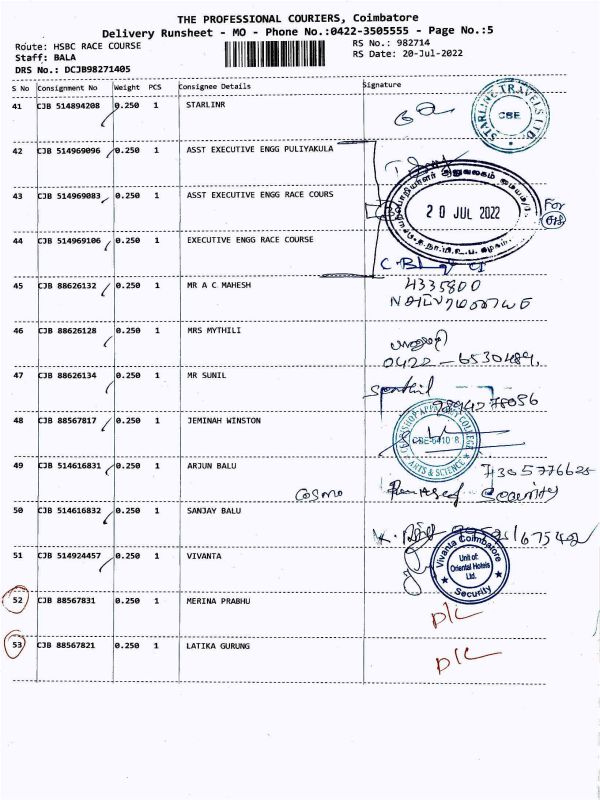 THE PROFESSIONAL COURIERS, Coimbatore
Delivery Runsheet - MO - Phone No.:0422-3505555 - Page No.:5
Route: HSBC RACE COURSE RS No.: 982714
Staff: BALA RS Date: 20-Jul-2022
DRS No.: DCJB98271405
S No Consignment No Weight PCS Consignee Details Signature
41 CJB 514894208 0.250 1 STARLINR
STARLINE TRAVELS LTD CBE
42 CJB 514969096 0.250 1 ASST EXECUTIVE ENGG PULIYAKULA
43 CJB 514969083 0.250 1 ASST EXECUTIVE ENGG RACE COURS
20 JUL 2022 For
44 CJB 514969106 0.250 1 EXECUTIVE ENGG RACE COURSE
45 CJB 88626132 0.250 1 MR A C MAHESH 4335800
46 CJB 88626128 0.250 1 MRS MYTHILI
0422 - 6530484,
47 CJB 88626134 0.250 1 MR SUNIL
48 CJB 88567817 0.250 1 JEMINAH WINSTON
COLLEGE ARTS & SCIENCE
49 CJB 514616831 0.250 1 ARJUN BALU
cosmo
50 CJB 514616832 0.250 1 SANJAY BALU
51 CJB 514924457 0.250 1 VIVANTA
Vivanta Coimbatore Unit of: Oriental Hotels Ltd. Security
52 CJB 88567831 0.250 1 MERINA PRABHU D/C
53 CJB 88567821 0.250 1 LATIKA GURUNG D/C